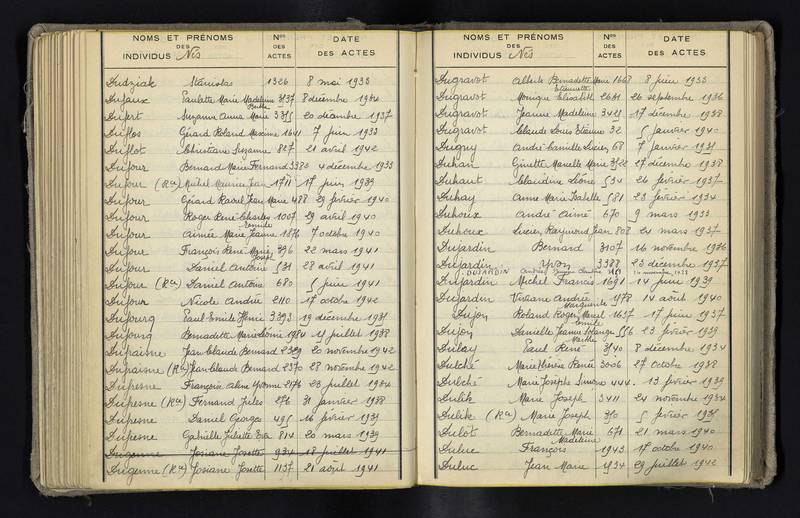 NOMS ET PRÉNOMS DES INDIVIDUS Nés
Nos DES ACTES
DATE DES ACTES
Dudziak Stanislas 1326 8 mai 1933
Dufaux Paulette Marie Madeleine 3137 8 décembre
Dufert Suzanne Anne Marie 20 décembre 1937
Duflos Gérard Roland Maxime 1641 7 juin 1933
Duflot Christiane Suzanne 827 21 avril 1942
Dufour Bernard Marie Fernand 3380 4 décembre 1933
Dufour (Rn) Michel Maurice Jean 1711 17 juin 1939
Dufour Gérard Raoul Jean Marie 488 29 février 1940
Dufour Roger René Charles 1007 29 avril 1940
Camille
Dufour Aimée Marie Jeanne 1876 7 octobre 1940
Dufour François René Marie 22 mars 1941
Joseph
Dufour Daniel Antoine 531 28 avril 1941
Dufour (Rn) Daniel Antoine 680 5 juin 1941
Dufour Nicole Andrée 2110 17 octobre 1942
Dufourg Paul Emile Henri 3393 19 décembre
Dufourg Bernadette Marie 1984 juillet 1938
Dufraisne Jean Claude Bernard 20 novembre 1942
Dufraisne (Rn) Jean Claude Bernard 2370 28 novembre 1942
Dufresne Françoise Aline Yvonne 2176 23 juillet
Dufresne (Rn) Fernand Jules 276 31 janvier 1938
Dufresne Daniel Georges 495 16 février
Dufresne Gabrielle Juliette Eva 814 20 mars 1939
Dugenne Josiane Josette 934 18 juillet 1941
Dugenne (Rn) Josiane Josette 1137 21 août 1941
NOMS ET PRÉNOMS DES INDIVIDUS Nés
Nos DES ACTES
DATE DES ACTES
Dugravot Alberte Bernadette Marie 1668 8 juin 1933
Etiennette
Dugravot Monique Elisabeth 2661 26 septembre 1936
Dugravot Jeanne Madeleine 3425 17 décembre 1938
Dugravot Claude Louis Etienne 32 5 janvier 1940
Dugny André Camille Lucien 68 7 janvier
Duhan Ginette Marcelle Marie 17 décembre 1938
Duhaut Claudine Léone 534 26 février 1937
Duhay Anne Marie Isabelle 581 23 février 1934
Duhoux André Aimé 670 9 mars 1933
Duhoux Lucien Raymond Jean 802 24 mars 1937
Dujardin Bernard 3107 16 novembre 1936
Dujardin Yvon 3388 23 décembre 1937
DUJARDIN novembre 1938
Dujardin Michel Francis 1691 14 juin 1939
Dujardin Viviane Andrée 1778 14 août 1940
Marguerite
Dujon Roland Roger Marcel 1637 17 juin 1937
Camille
Dujon Danielle Jeanne Solange 556 23 février 1939
Marthe
Dulay Paul René 3140 8 décembre 1934
Dulché Marie Thérèse Renée 3006 27 octobre 1938
Dulché Marie Josèphe Simone 444 13 février 1939
Dulik Marie Joseph 3411 24 novembre 1934
Dulik (Rn) Marie Joseph 5 février
Dulot Bernadette Marie 671 21 mars 1940
Madeleine
Duluc François 1943 17 octobre 1940
Duluc Jean Marie 1534 29 juillet 1942